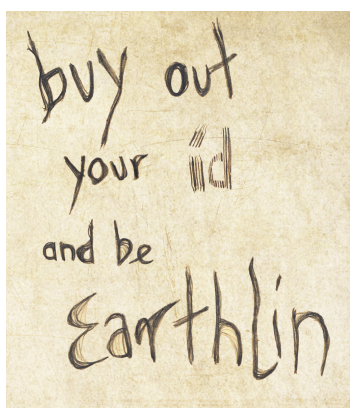 buy out
your id
and be
Earthlin